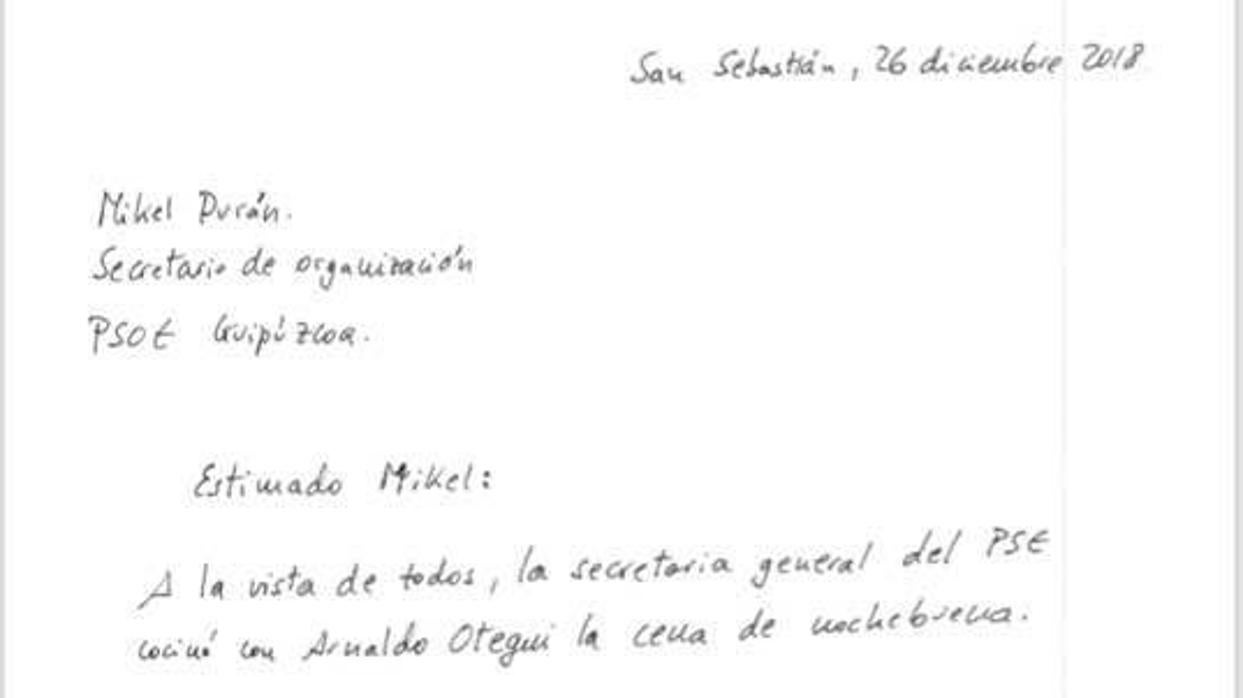 San Sebastián, 26 diciembre 2018
Mikel Durán.
Secretario de organización
PSOE Guipúzcoa.
Estimado Mikel:
A la vista de todos, la secretaria general del PSE
cocinó con Arnaldo Otegui la cena de nochebuena.